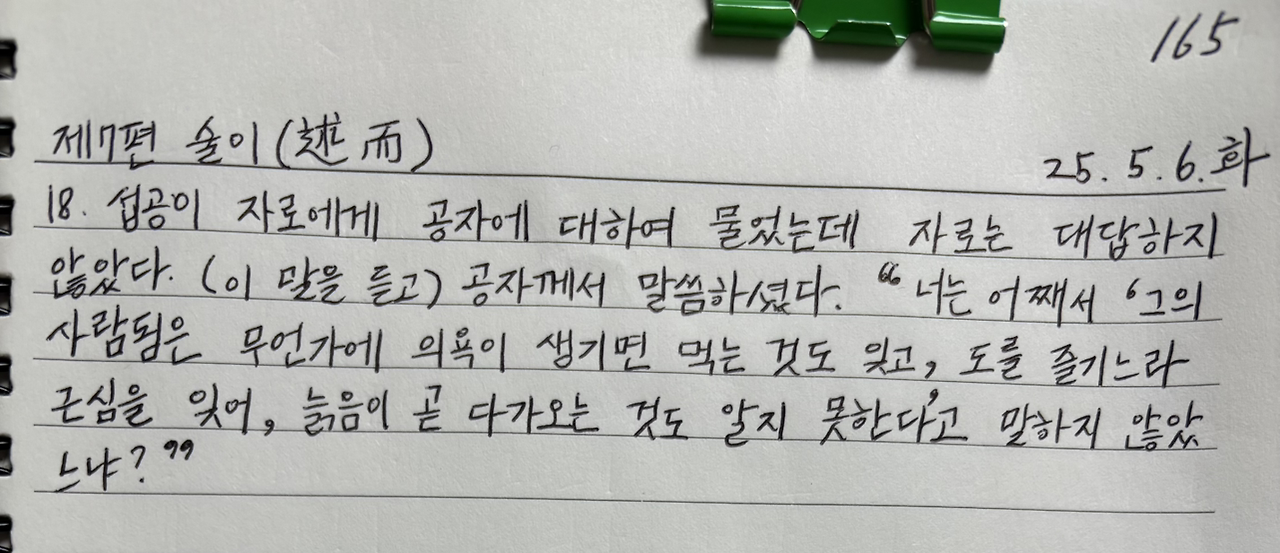 165
제7편 술이(述而)
25. 5. 6. 화
18. 섭공이 자로에게 공자에 대하여 물었는데 자로는 대답하지
않았다. (이 말을 듣고) 공자께서 말씀하셨다. “너는 어째서 ‘그의
사람됨은 무언가에 의욕이 생기면 먹는 것도 잊고, 도를 즐기느라
근심을 잊어, 늙음이 곧 다가오는 것도 알지 못한다’고 말하지 않았
느냐?”